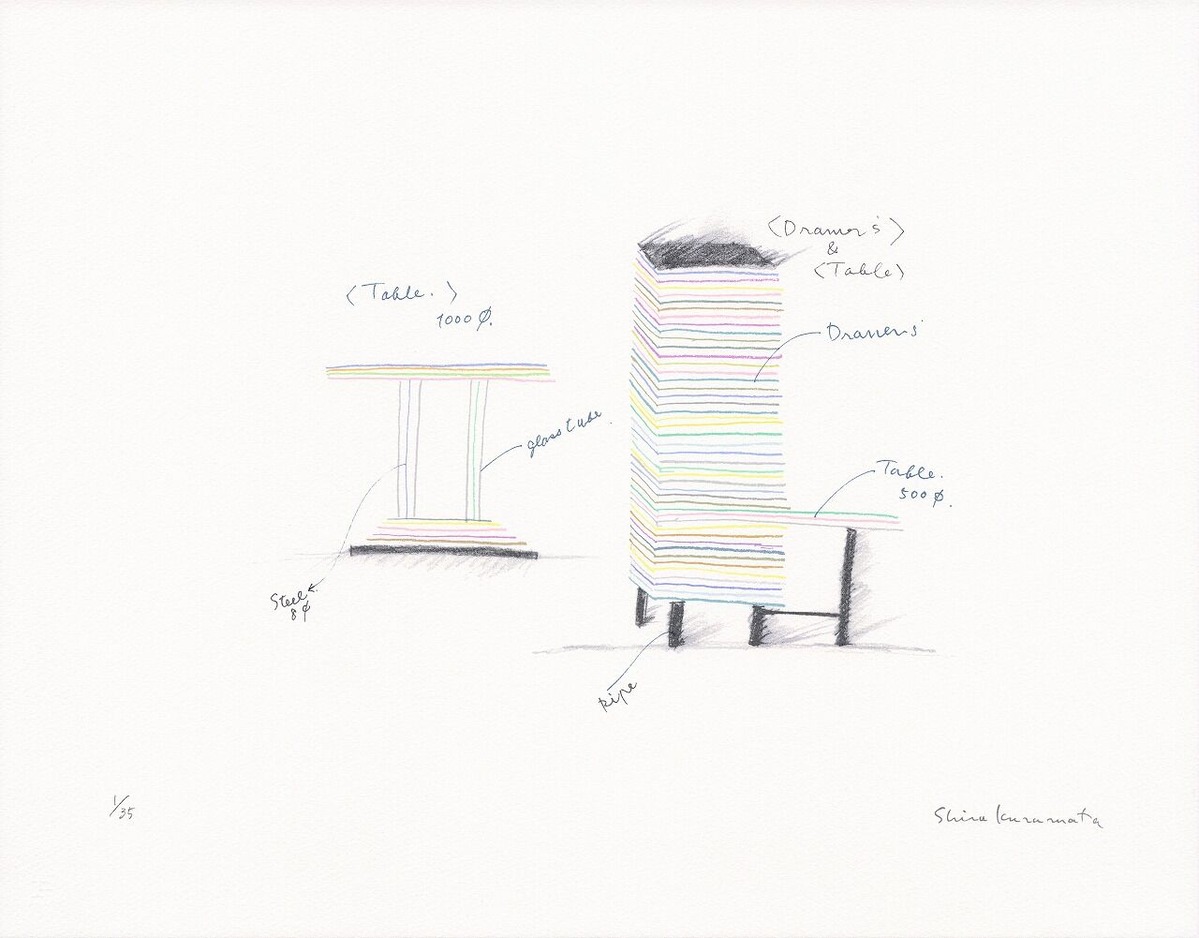 〈Table.〉
1000 ∅.
glass tube.
Steel
8∅
〈Drawer's〉
&
〈Table〉
Drawers'
Table.
500 ∅.
Pipe
1/35
Shiro Kuramata